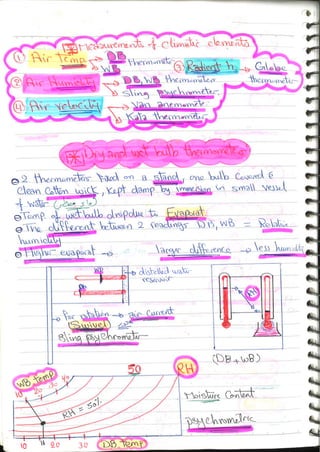 * Measurements of climatic elements
① Air Temp → DB
WB Thermomet
③ Radient h. → Globe thermometer
② Air Humidity → DB, WB thermometer
→ Sling Psychrometer
④ Air velocity → Van anemomet
→ Kata thermometer
* Dry and wet bulb thermometer
2 thermometer fixed on a stand, one bulb covered &
clean cotton wick, kept damp by immersion in small vessel
of water
Temp of wet bulb drops due to Evaporat.
The different between 2 readings DB, WB = Relative
humidity
Higher evaporat → larger difference → less humidity
WB
DB
distelled water
reservoir
For rotation → air current
(Swivel)
Sling psychrometer
(DB + WB)
WB temp
50
RH
10 20 30 40
RH = 50%
Moisture Content
psychrometric
10 20 30 DB temp